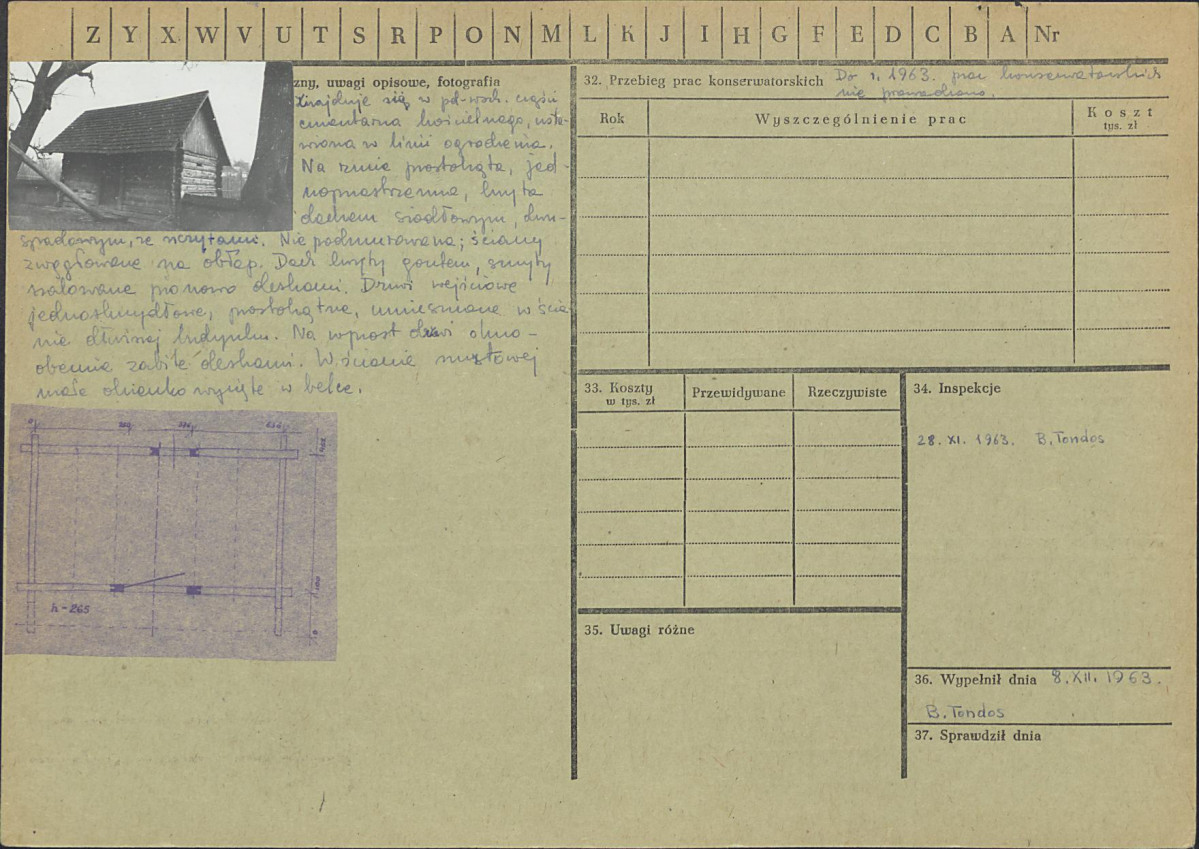 Z Y X W V U T S R P O N M L K J I H G F E D C B A Nr
zny, uwagi opisowe, fotografia
Znajduje się w pd-wsch. części
cmentarza kościelnego, usta-
wiona w linii ogrodzenia.
Na rzucie prostokąta, jed-
noprzestrzenna, kryta
dachem siodłowym, dwu-
spadowym, ze szczytami. Nie podmurowana; ściany
zwęgłowane na obłap. Dach kryty gontem, szczyty
szalowane pionowo deskami. Drzwi wejściowe
jednoskrzydłowe, prostokątne, umieszczone w ścia-
nie dłuższej budynku. Na wprost drzwi okno-
obecnie zabite deskami. W ścianie szczytowej
małe okienko wycięte w belce.
h-265
32. Przebieg prac konserwatorskich Do r. 1963. prac konserwatorskich
nie prowadzono.
Rok Wyszczególnienie prac Koszt
tys. zł
33. Koszty
w tys. zł
Przewidywane Rzeczywiste
34. Inspekcje
28. XI. 1963. B. Tondos
35. Uwagi różne
36. Wypełnił dnia 8. XII. 1963.
B. Tondos
37. Sprawdził dnia